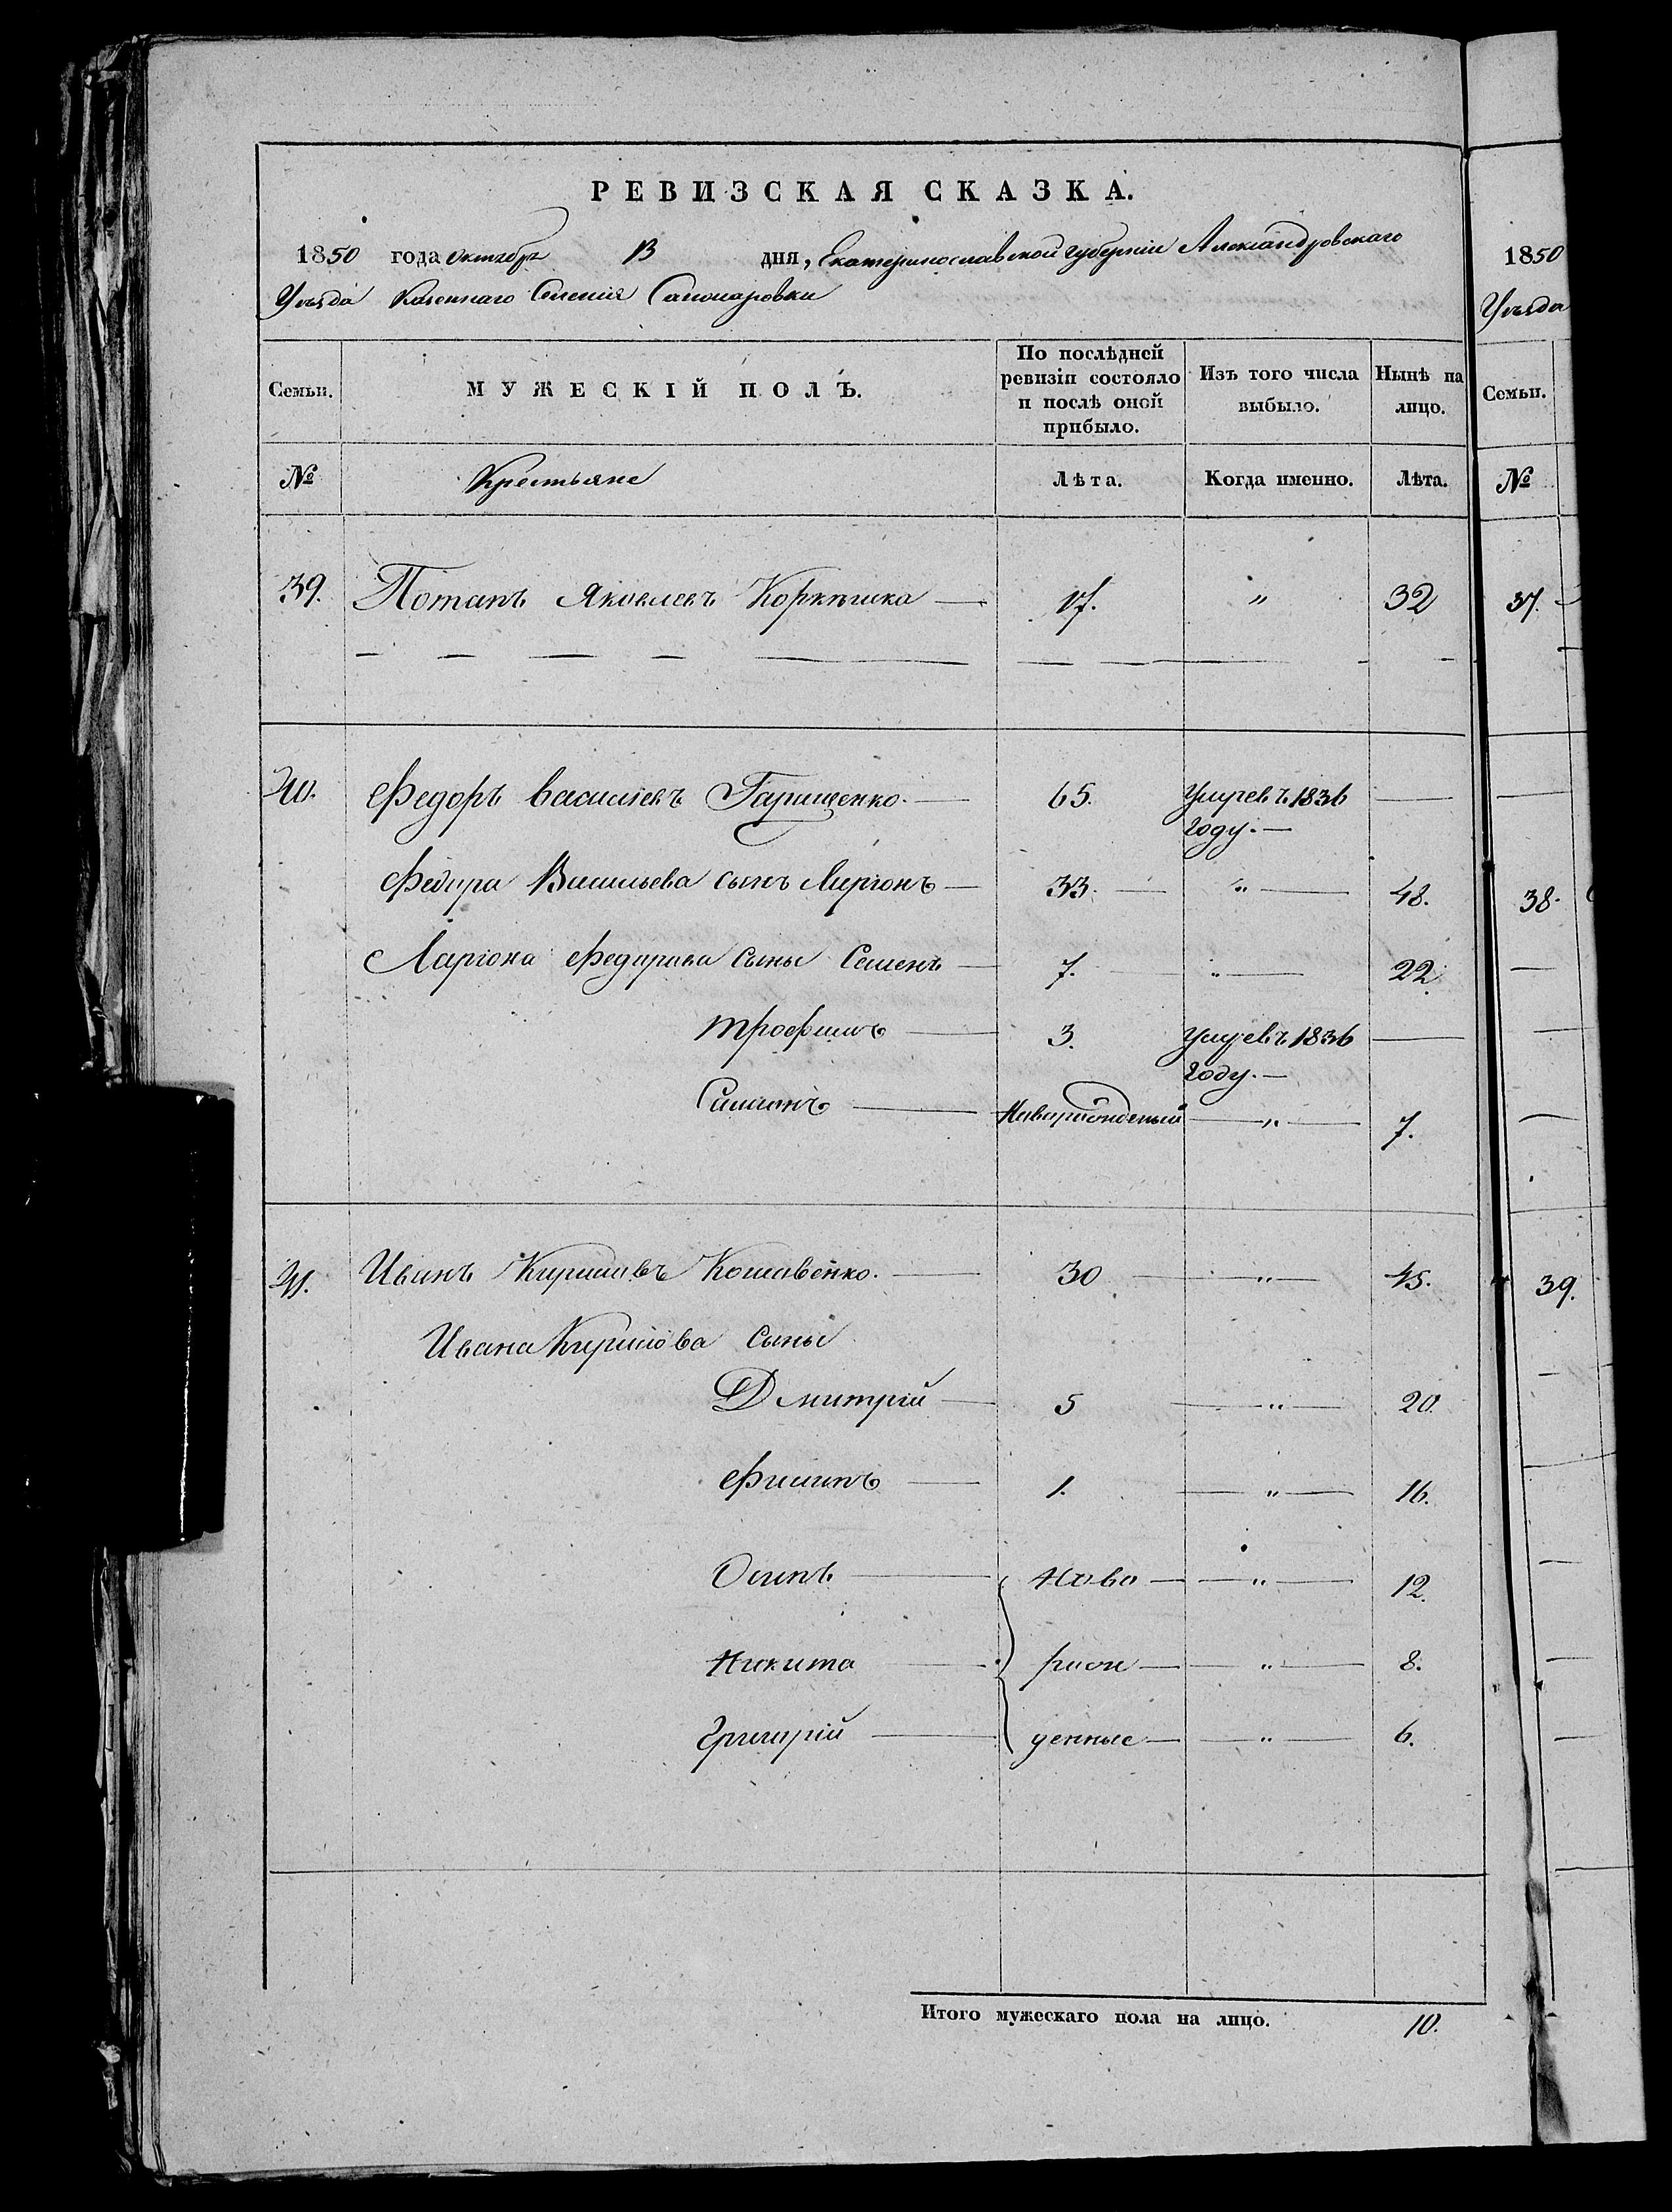 РЕВИЗСКАЯ СКАЗКА.
1850 года октября 13 дня, Екатеринославской губерніи Александровскаго
Уѣзда Казеннаго Селенія
Семьи. МУЖЕСКІЙ ПОЛЪ. По послѣдней ревизіи состояло и послѣ оной прибыло. Изъ того числа выбыло. Нынѣ на лицо.
№ Крестьяне Лѣта. Когда именно. Лѣта.
39. Потапъ Яковлевъ 17. " 32
40. Федоръ Васильевъ Гарищенко. 65. Умре въ 1836
году.
Федора Васильева сынъ Ларіонъ 33. " 48.
Ларіона Федорова сыны Семенъ 7. " 22.
Трофимъ 3. Умре въ 1836
году.
Симіонъ Новорожденый " 7.
41. Иванъ Кириловъ 30 " 45.
Ивана Кирилова сыны
Дмитрій 5 " 20.
Филипъ 1. " 16.
Осипъ ново " 12.
Никита рож " 8.
Григорій денные " 6.
Итого мужескаго пола на лицо. 10.
1850
Уѣзда
Семьи.
№
37.
38.
39.